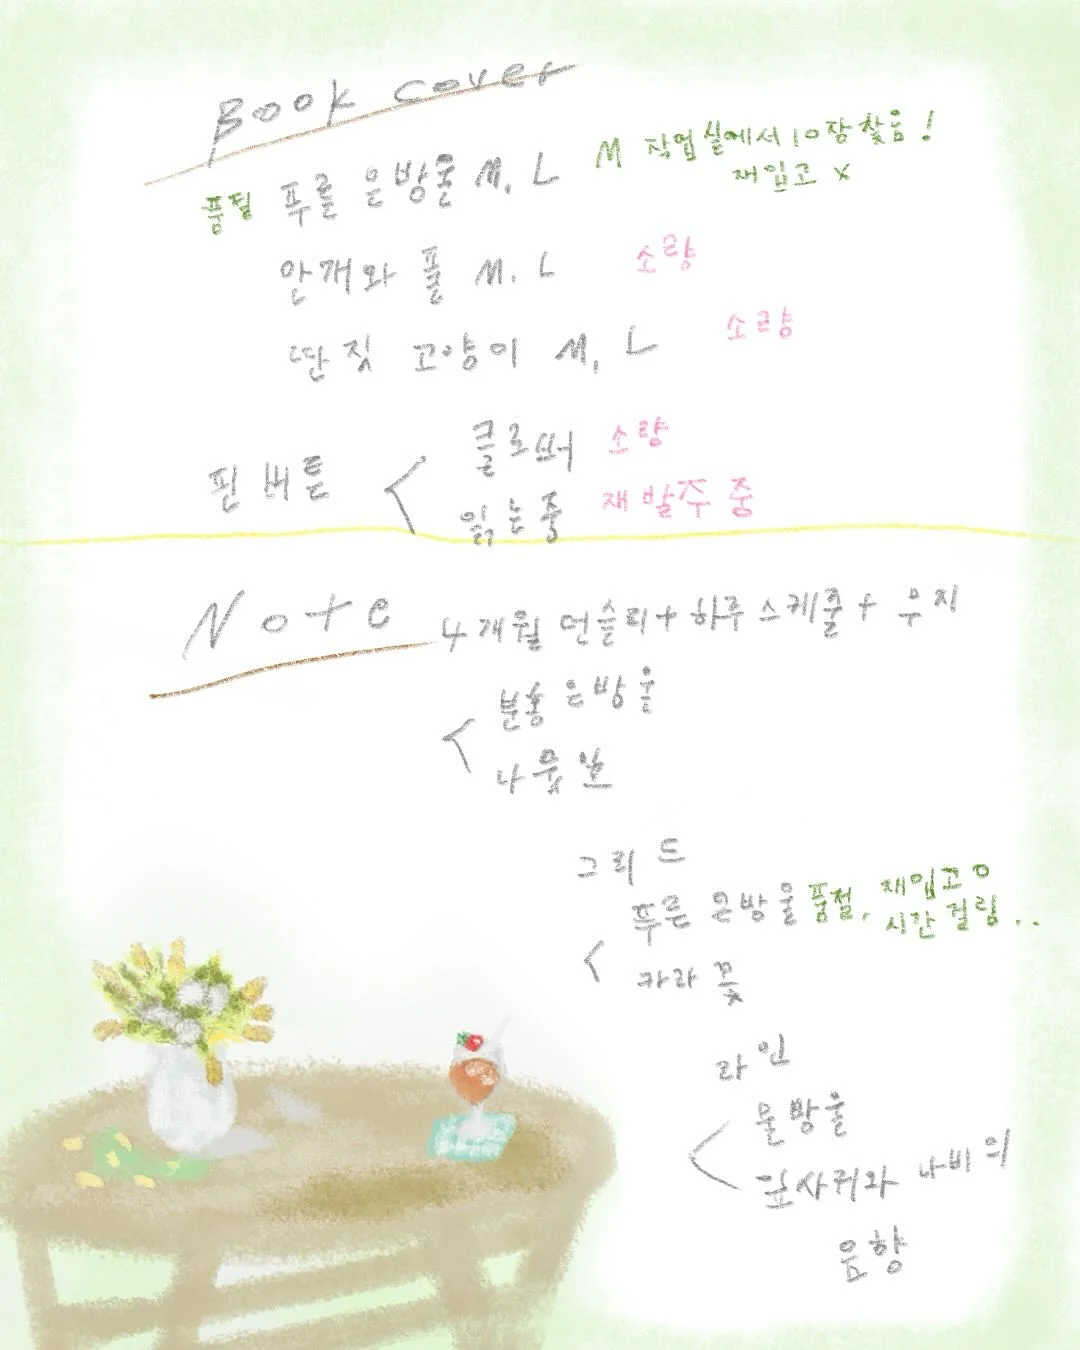 Book cover
품절 푸른 은방울 M, L M 작업실에서 10장 찾음!
재입고 x
안개와 풀 M, L 소량
딴짓 고양이 M, L 소량
핀버튼 < 클로버 소량
읽는중 재발주 중
Note 4개월 먼슬리+하루스케줄+무지
< 분홍 은방울
나뭇잎
그리드
< 푸른 은방울 품절, 재입고 O
시간 걸림..
카라 꽃
라인
< 물방울
잎사귀와 나비의
음향